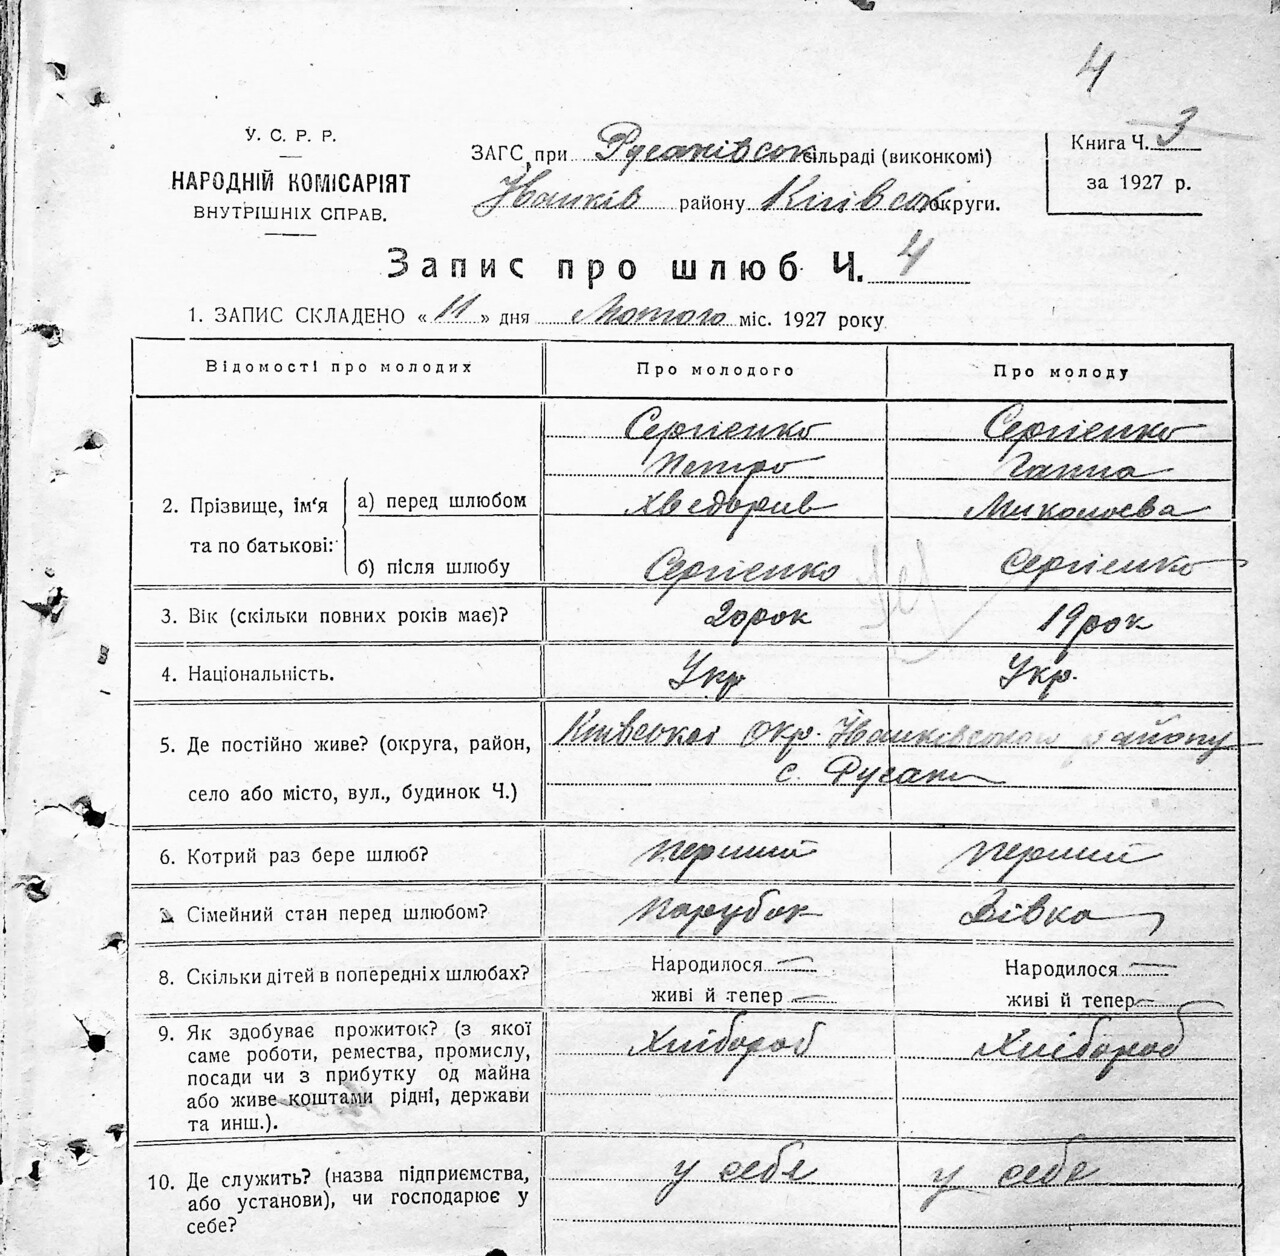 4
У. С. Р. Р.
НАРОДНІЙ КОМІСАРІЯТ
ВНУТРІШНІХ СПРАВ.
ЗАГС при Русаківськ сільраді (виконкомі)
Іванків району Київськ округи.
Книга Ч. 3
за 1927 р.
Запис про шлюб Ч. 4
1. ЗАПИС СКЛАДЕНО « 11 » дня Лютого міс. 1927 року
Відомості про молодих Про молодого Про молоду
Сергієнко Сергієнко
Петро Ганна
2. Прізвище, ім‘я а) перед шлюбом Хведорів Миколаєва
та по батькові:
б) після шлюбу Сергієнко Сергієнко
3. Вік (скільки повних років має)? 20 рок 19 рок
4. Національність. Укр Укр.
5. Де постійно живе? (округа, район, Київської Окр. Іванківського району
село або місто, вул., будинок Ч.) с. Русаки
6. Котрий раз бере шлюб? перший перший
Сімейний стан перед шлюбом? парубок Дівка
8. Скільки дітей в попередніх шлюбах? Народилося — Народилося —
живі й тепер — живі й тепер —
9. Як здобуває прожиток? (з якої Хлібороб Хлібороб
саме роботи, ремества, промислу,
посади чи з прибутку од майна
або живе коштами рідні, держави
та инш.).
10. Де служить? (назва підприємства, у себе у себе
або установи), чи господарює у
себе?